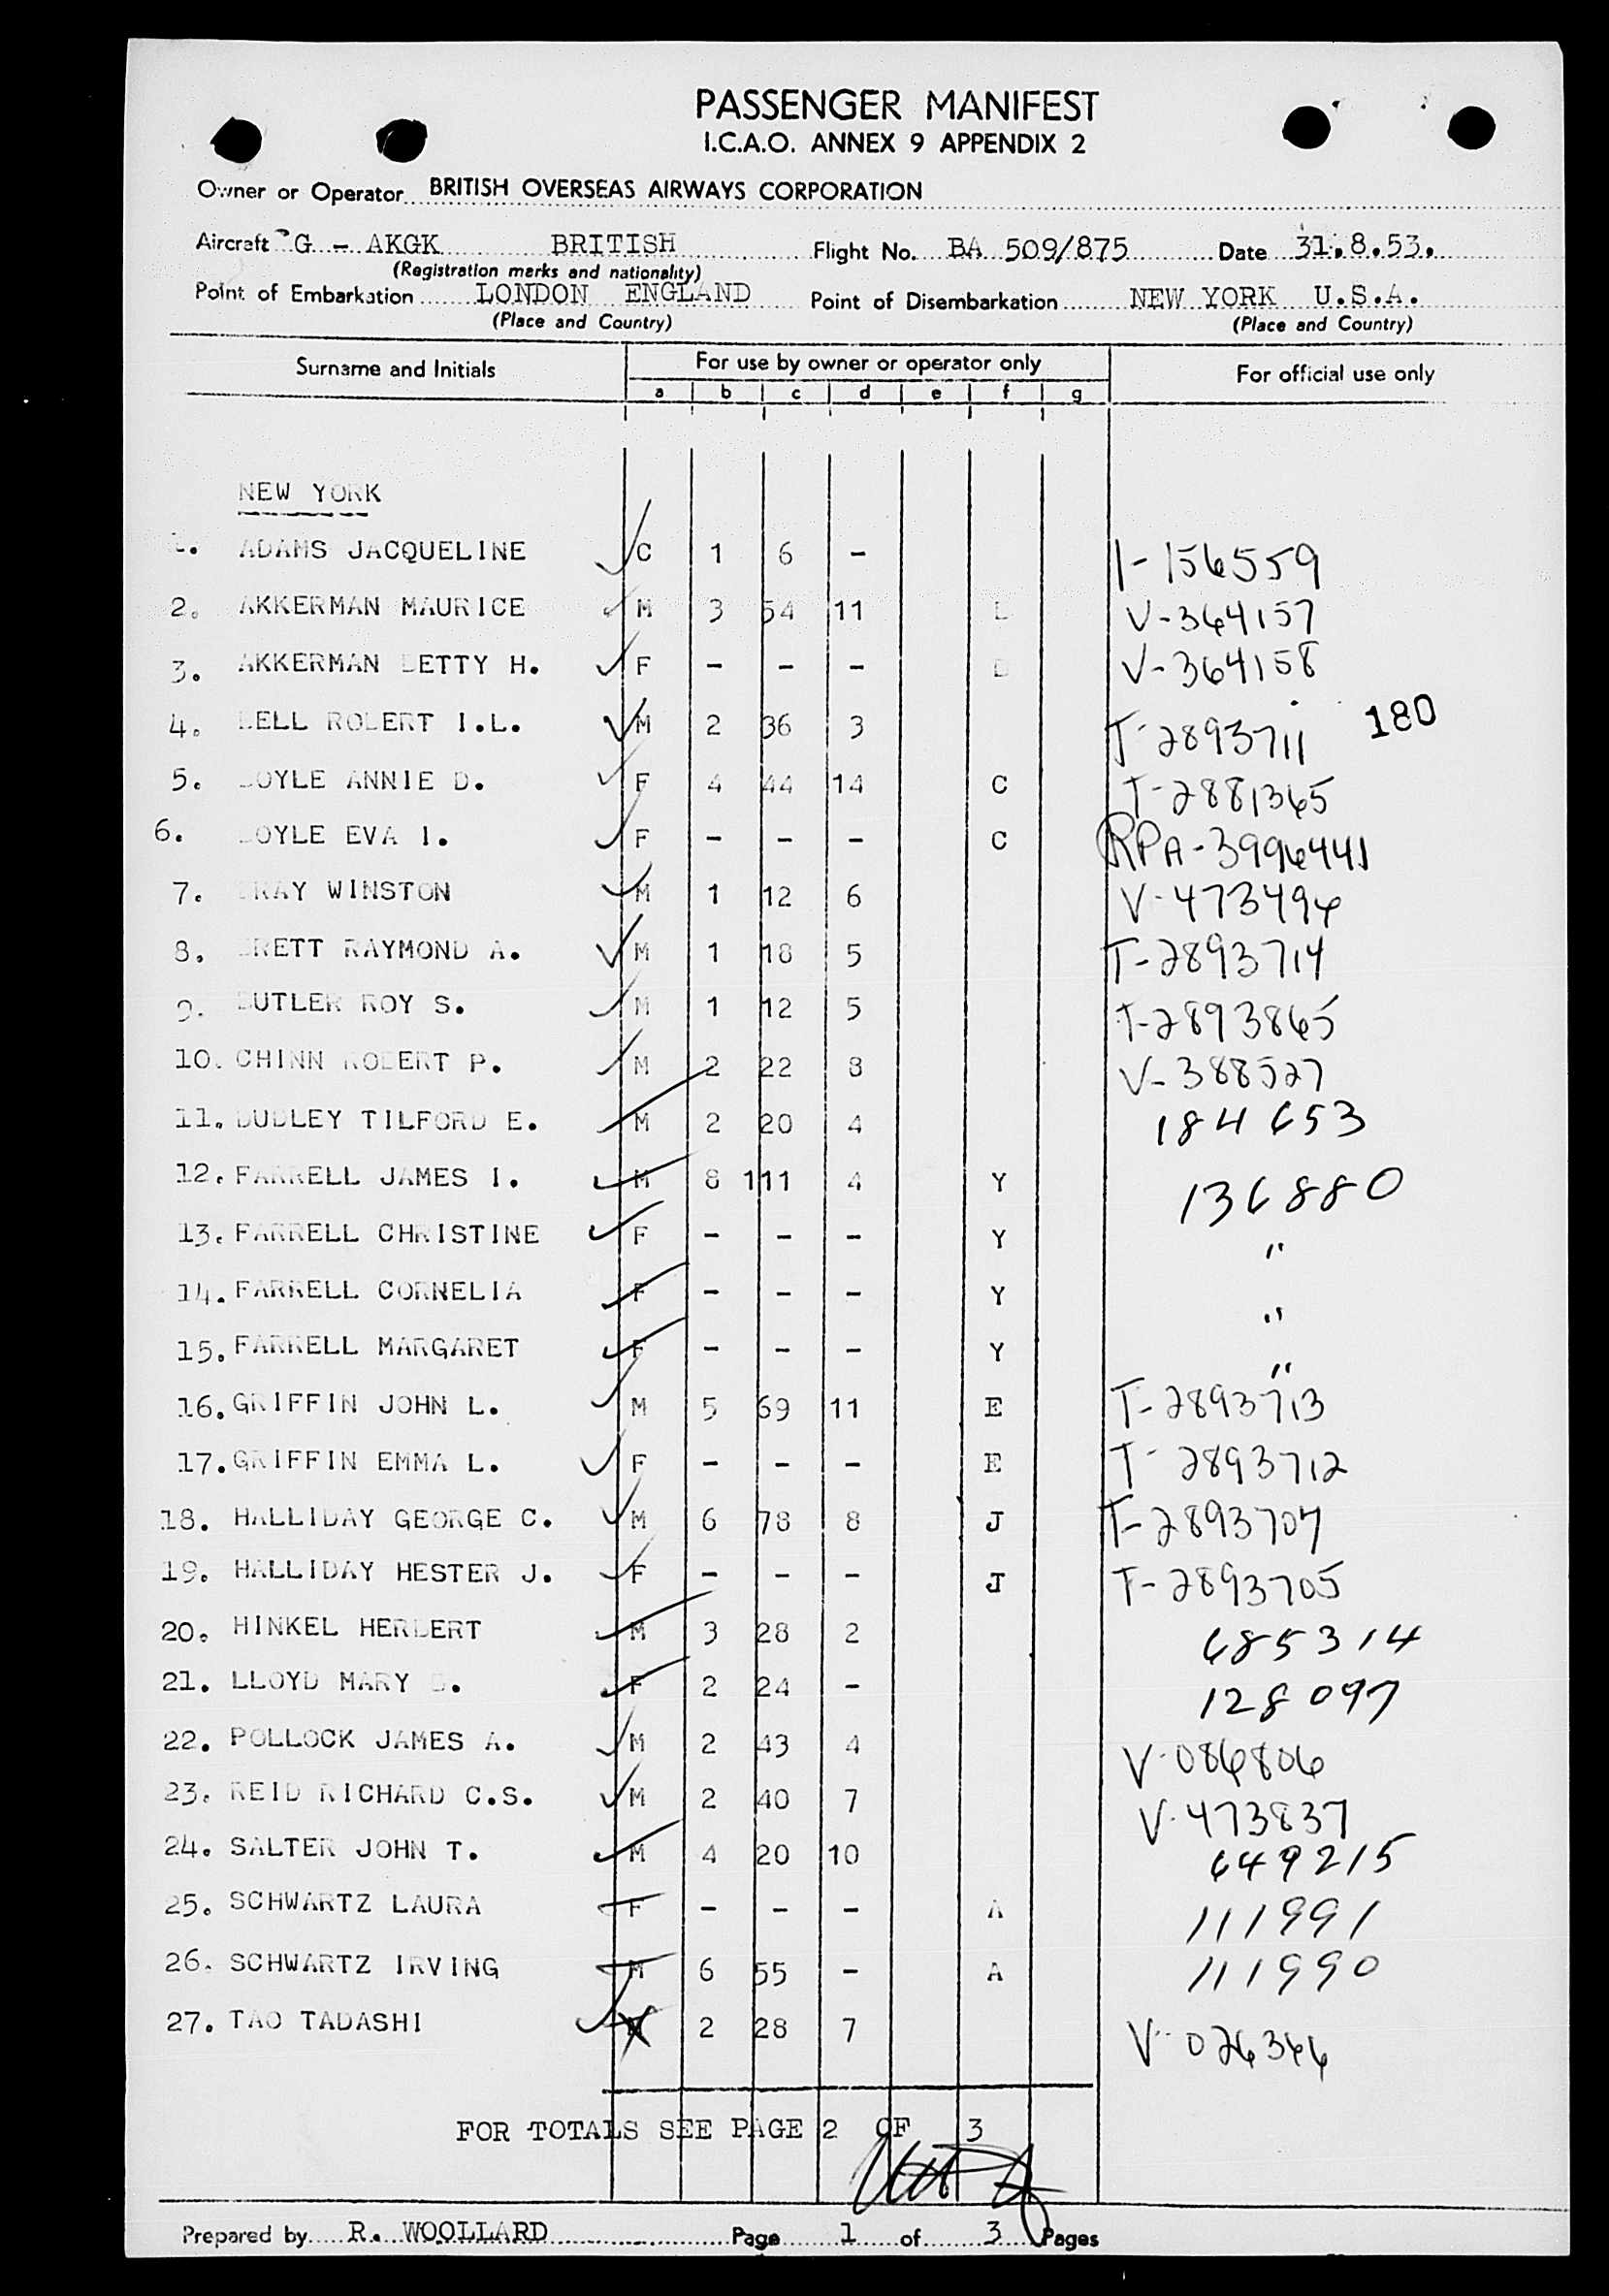 PASSENGER MANIFEST
I.C.A.O. ANNEX 9 APPENDIX 2
Owner or Operator BRITISH OVERSEAS AIRWAYS CORPORATION
Aircraft G - AKGK BRITISH Flight No. BA 509/875 Date 31.8.53.
(Registration marks and nationality)
Point of Embarkation LONDON ENGLAND Point of Disembarkation NEW YORK U.S.A.
(Place and Country) (Place and Country)
Surname and Initials For use by owner or operator only For official use only
a b c d e f g
NEW YORK
1. ADAMS JACQUELINE C 1 6 - 1-156559
2. AKKERMAN MAURICE M 3 54 11 V-364157
3. AKKERMAN BETTY H. F - - - V-364158
4. BELL ROBERT I.L. M 2 36 3 T-2893711 180
5. BOYLE ANNIE D. F 4 44 14 C T-2881365
6. BOYLE EVA I. F - - - C RPA-3996441
7. BRAY WINSTON M 1 12 6 V-473496
8. BRETT RAYMOND A. M 1 18 5 T-2893714
9. BUTLER ROY S. M 1 12 5 T-2893865
10. CHINN ROBERT P. M 2 22 8 V-388527
11. DUDLEY TILFORD E. M 2 20 4 184653
12. FARRELL JAMES I. M 8 111 4 Y 136880
13. FARRELL CHRISTINE F - - - Y "
14. FARRELL CORNELIA F - - - Y "
15. FARRELL MARGARET F - - - Y "
16. GRIFFIN JOHN L. M 5 69 11 E T-2893713
17. GRIFFIN EMMA L. F - - - E T-2893712
18. HALLIDAY GEORGE C. M 6 78 8 J T-2893707
19. HALLIDAY HESTER J. F - - - J T-2893705
20. HINKEL HERBERT M 3 28 2 685314
21. LLOYD MARY B. F 2 24 - 128097
22. POLLOCK JAMES A. M 2 43 4 V-086806
23. REID RICHARD C.S. M 2 40 7 V-473837
24. SALTER JOHN T. M 4 20 10 649215
25. SCHWARTZ LAURA F - - - A 111991
26. SCHWARTZ IRVING M 6 55 - A 111990
27. TAO TADASHI 2 28 7 V-026366
FOR TOTALS SEE PAGE 2 OF 3
Prepared by R. WOOLLARD Page 1 of 3 Pages